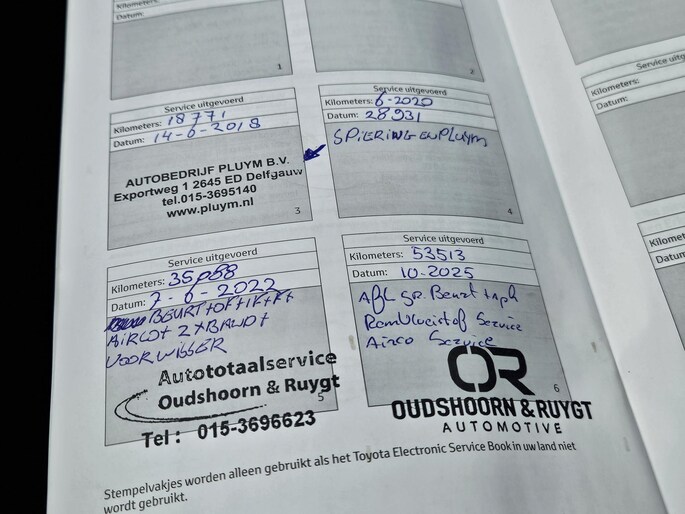 Kilometers:
Datum:
1
2
Service uitgevoerd
Kilometers: 18771
Datum: 14-6-2018
AUTOBEDRIJF PLUYM B.V.
Exportweg 1 2645 ED Delfgauw
tel.015-3695140
www.pluym.nl
3
Service uitgevoerd
Kilometers: 6-2020
Datum: 28931
SPIERING EN PLUYM
4
Service uitgevoerd
Kilometers:
Datum: 7-6-2022
BEURT+OF+IF+FF+
AIRCO+ 2XBAND+
VOORWISSER
Autototaalservice
Oudshoorn & Ruygt
5
Tel: 015-3696623
Service uitgevoerd
Kilometers: 53513
Datum: 10-2025
Afl gr. Beurt + apk
Remvloeistof Service
Airco Service
OR
6
OUDSHOORN & RUYGT
AUTOMOTIVE
Stempelvakjes worden alleen gebruikt als het Toyota Electronic Service Book in uw land niet
wordt gebruikt.
Service uit
Kilometers:
Datum:
Kilomet
Datum: